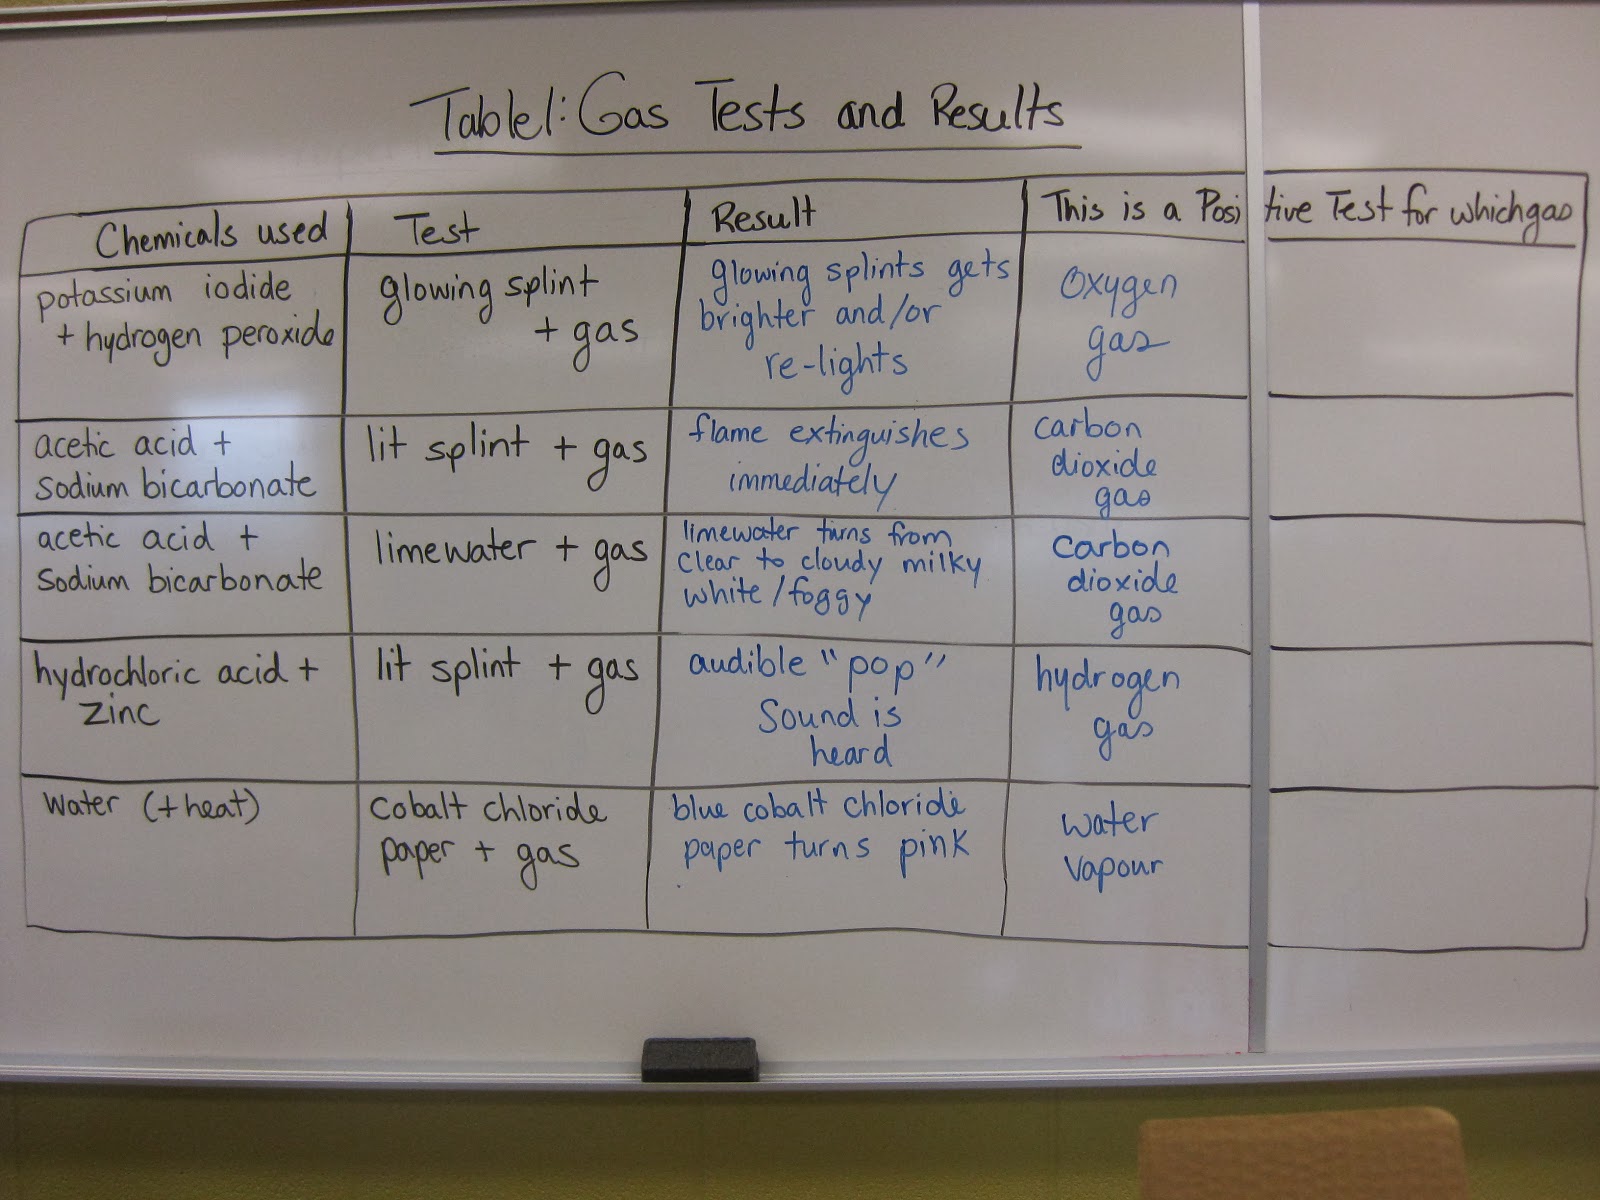 Table1: Gas Tests and Results
Chemicals used
Test
Result
This is a Positive Test for which gas
potassium iodide
+ hydrogen peroxide
glowing splint
+ gas
glowing splints gets
brighter and/or
re-lights
Oxygen
gas
acetic acid +
sodium bicarbonate
lit splint + gas
flame extinguishes
immediately
carbon
dioxide
gas
acetic acid +
sodium bicarbonate
limewater + gas
limewater turns from
clear to cloudy milky
white/foggy
carbon
dioxide
gas
hydrochloric acid +
zinc
lit splint + gas
audible "pop"
Sound is
heard
hydrogen
gas
water (+heat)
cobalt chloride
paper + gas
blue cobalt chloride
paper turns pink
water
vapour